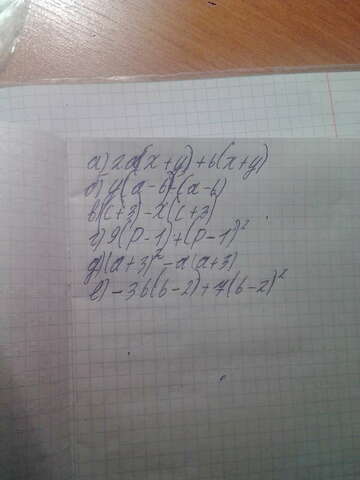 а) 2a(x+y)+b(x+y)
б) y(a-b)-(a-b)
в(c+3)-x(c+3)
г) 9(p-1)+(p-1)²
д) (a+3)²-a(a+3)
е) -3b(b-2)+7(b-2)²